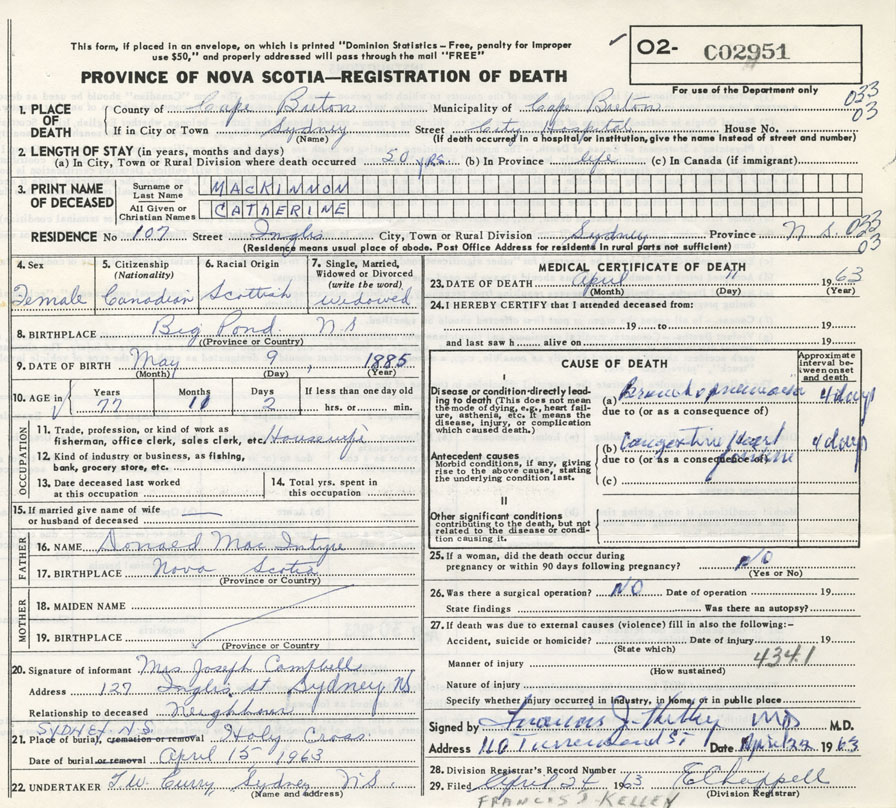 This form, if placed in an envelope, on which is printed "Dominion Statistics – Free, penalty for improper
use $50," and properly addressed will pass through the mail "FREE"
O2- CO2951
PROVINCE OF NOVA SCOTIA—REGISTRATION OF DEATH
For use of the Department only
033
03
1. PLACE OF DEATH County of Cape Breton Municipality of Cape Breton
If in City or Town Sydney Street City Hospital House No.
(Name) (If death occurred in a hospital or institution, give the name instead of street and number)
2. LENGTH OF STAY (in years, months and days)
(a) In City, Town or Rural Division where death occurred 50 yrs. (b) In Province life (c) In Canada (if immigrant)
3. PRINT NAME OF DECEASED Surname or Last Name MACKINNON
All Given or Christian Names CATHERINE
RESIDENCE No 107 Street Inglis City, Town or Rural Division Sydney Province N. S. 033
03
(Residence means usual place of abode. Post Office Address for residents in rural parts not sufficient)
4. Sex Female
5. Citizenship (Nationality) Canadian
6. Racial Origin Scottish
7. Single, Married, Widowed or Divorced (write the word) widowed
8. BIRTHPLACE Big Pond N S
(Province or Country)
9. DATE OF BIRTH May 9, 1885
(Month) (Day) (Year)
10. AGE in Years 77 Months 11 Days 2 If less than one day old
hrs. or min.
OCCUPATION
11. Trade, profession, or kind of work as
fisherman, office clerk, sales clerk, etc. Housewife
12. Kind of industry or business, as fishing,
bank, grocery store, etc.
13. Date deceased last worked at this occupation
14. Total yrs. spent in this occupation
15. If married give name of wife
or husband of deceased
FATHER
16. NAME Donald Mac Intyre
17. BIRTHPLACE Nova Scotia
(Province or Country)
MOTHER
18. MAIDEN NAME
19. BIRTHPLACE
(Province or Country)
20. Signature of informant Mrs Joseph Campbell
Address 127 Inglis St Sydney NS
Relationship to deceased Neighbour
SYDNEY N.S.
21. Place of burial, cremation or removal Holy Cross
Date of burial or removal April 15 1963
22. UNDERTAKER T.W. Curry, Sydney N.S.
(Name and address)
MEDICAL CERTIFICATE OF DEATH
23. DATE OF DEATH April 11 1963
(Month) (Day) (Year)
24. I HEREBY CERTIFY that I attended deceased from:
19 to 19
and last saw h alive on 19
CAUSE OF DEATH
Approximate interval between onset and death
I
Disease or condition directly leading to death (This does not mean the mode of dying, e.g., heart failure, asthenia, etc. It means the disease, injury, or complication which caused death.)
(a) Bronchopneumonia 4 days
due to (or as a consequence of)
Antecedent causes
Morbid conditions, if any, giving rise to the above cause, stating the underlying condition last.
(b) Congestive Heart failure 4 days
due to (or as a consequence of)
(c)
II
Other significant conditions
contributing to the death, but not related to the disease or condition causing it.
25. If a woman, did the death occur during
pregnancy or within 90 days following pregnancy? NO
(Yes or No)
26. Was there a surgical operation? NO Date of operation 19
State findings Was there an autopsy?
27. If death was due to external causes (violence) fill in also the following:–
Accident, suicide or homicide? Date of injury 19
(State which)
Manner of injury 4341
(How sustained)
Nature of injury
Specify whether injury occurred in industry, in home, or in public place
Signed by Francis J. Kelley MD M.D.
Address 110 Townsend St Date April 22 1963
28. Division Registrar's Record Number
29. Filed April 24 1963 E Chappell
(Division Registrar)
FRANCIS J. KELLEY